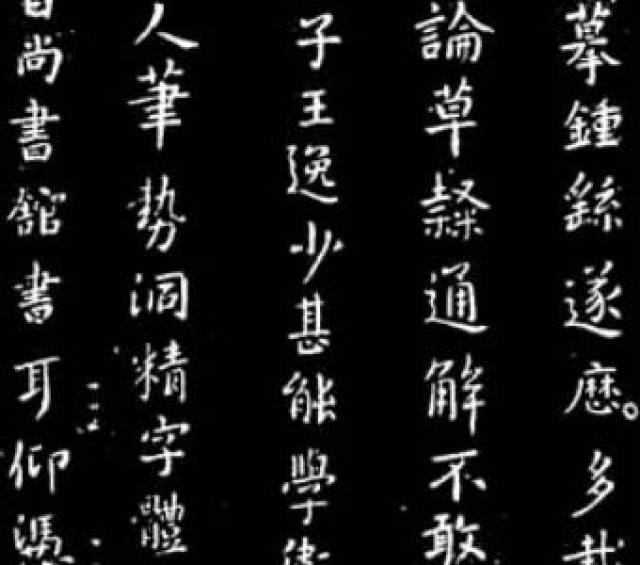 摹鍾繇遂歷多載
論草隸通解不敢
子王逸少甚能學衛
人筆勢洞精字體
晉尚書館書耳仰憑